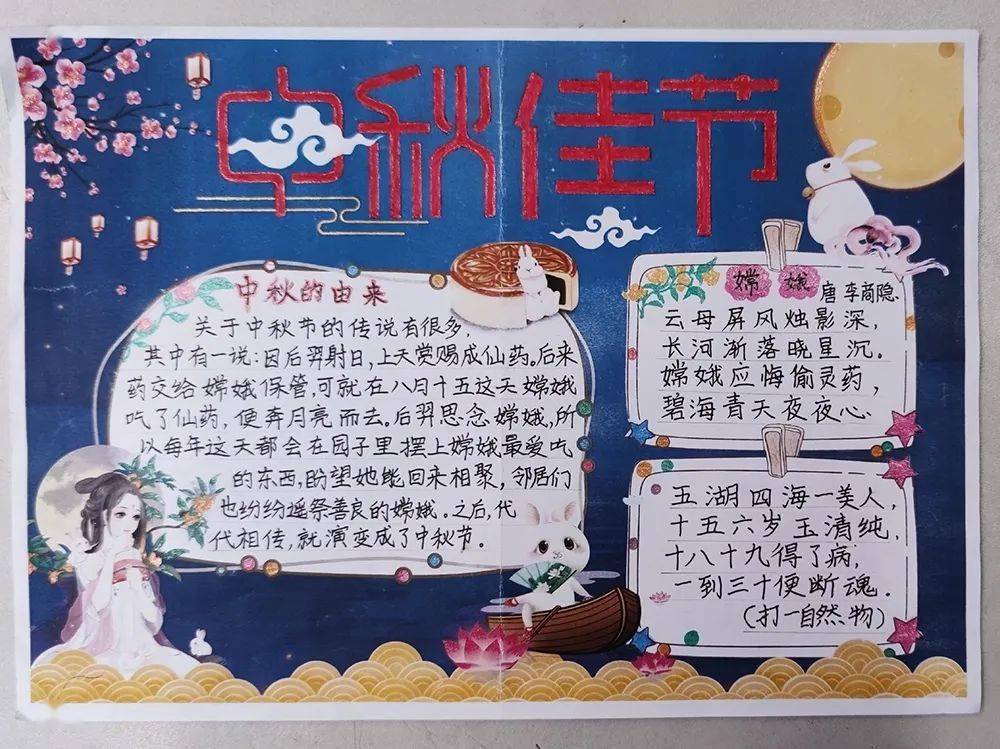 中秋佳节
中秋的由来
关于中秋节的传说有很多,
其中有一说:因后羿射日,上天赏赐成仙药。后来
药交给嫦娥保管,可就在八月十五这天嫦娥
吃了仙药,便奔月亮而去。后羿思念嫦娥,所
以每年这天都会在园子里摆上嫦娥最爱吃
的东西,盼望她能回来相聚,邻居们
也纷纷遥祭善良的嫦娥。之后,代
代相传,就演变成了中秋节.
嫦娥 唐 李商隐.
云母屏风烛影深,
长河渐落晓星沉.
嫦娥应悔偷灵药,
碧海青天夜夜心.
五湖四海一美人,
十五六岁玉清纯,
十八十九得了病,
一到三十便断魂.
(打一自然物)